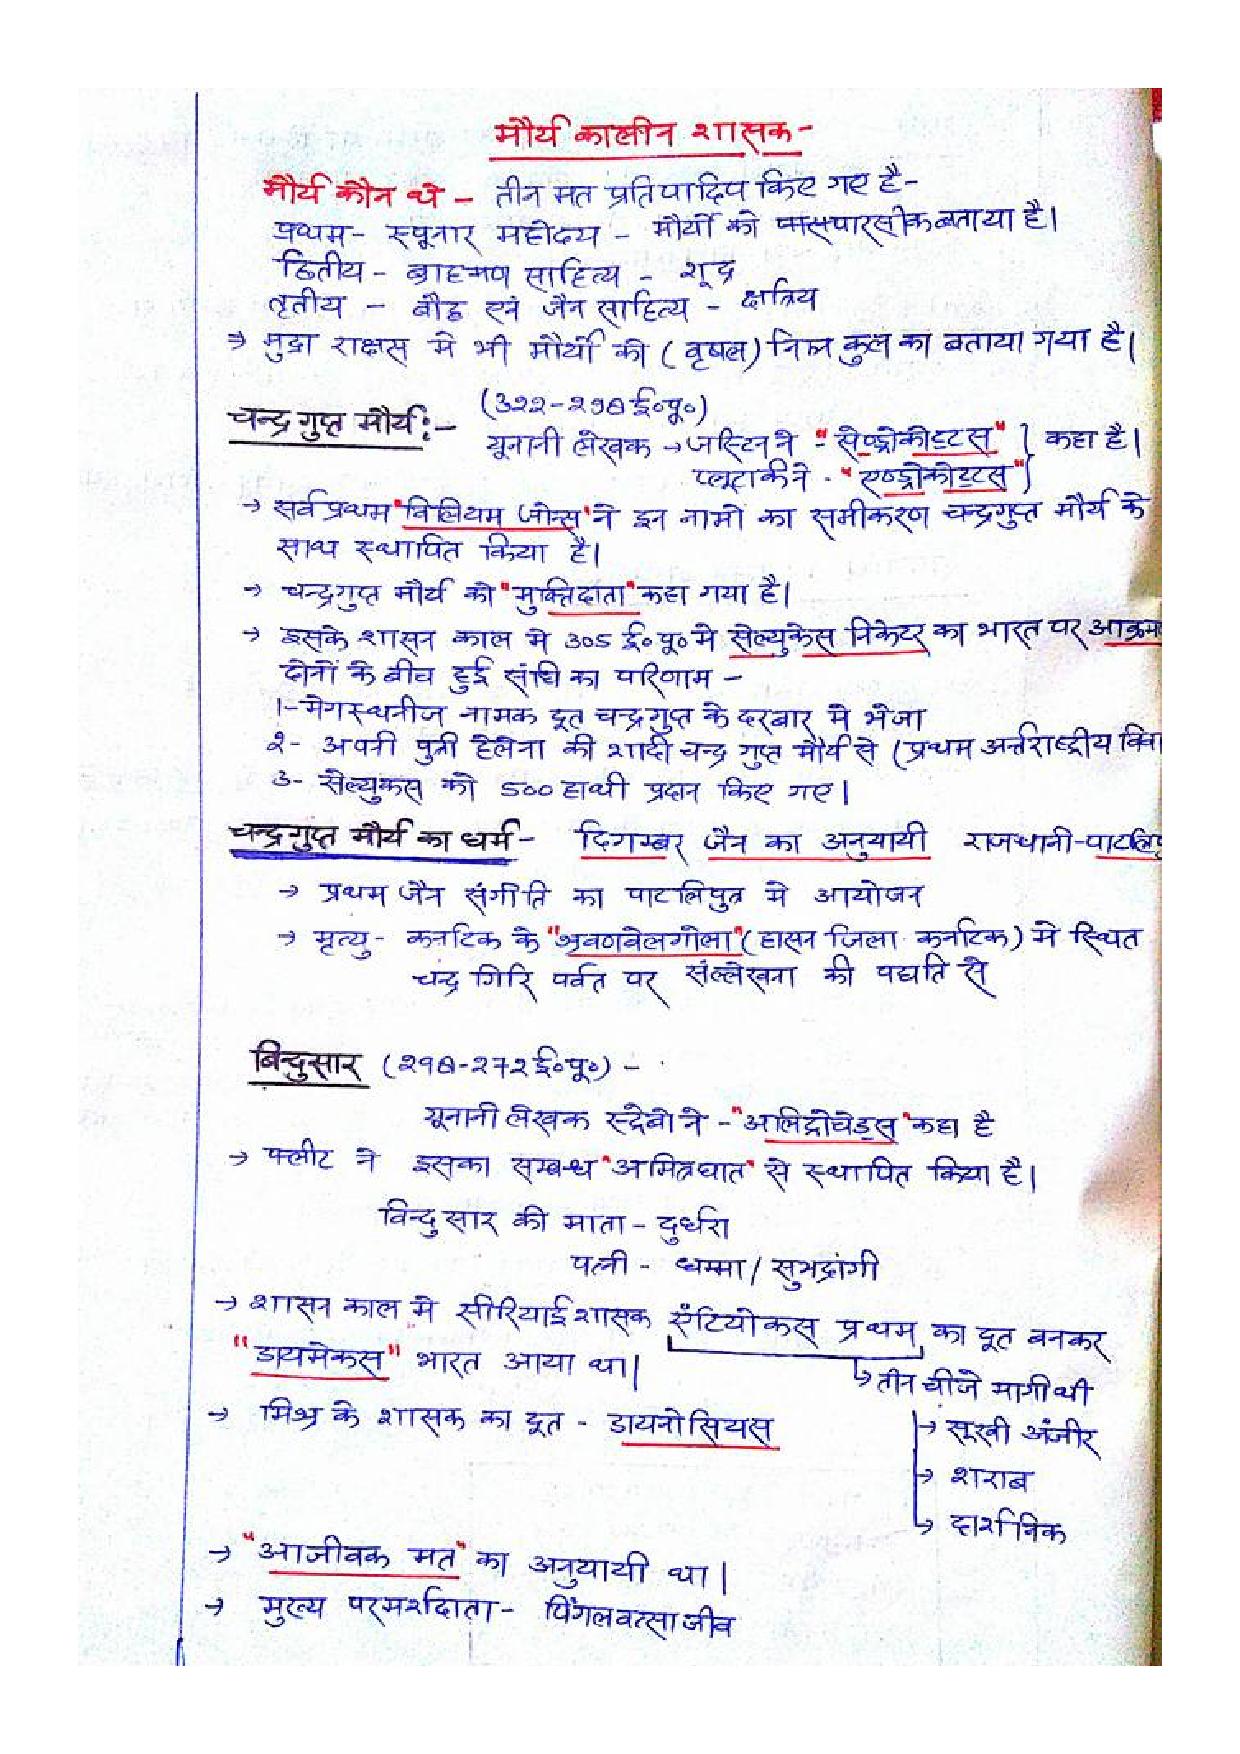 मौर्य कालीन शासक -
मौर्य कौन थे - तीन मत प्रतिपादिप किए गए है-
प्रथम - स्पूनार महोदय - मौर्यो को पारसीक बताया है।
द्वितीय - ब्राहमण साहित्य - शूद्र
तृतीय - बौद्ध एवं जैन साहित्य - क्षत्रिय
→ मुद्रा राक्षस मे भी मौर्यो को (वृषल) निम्न कुल का बताया गया है।
(322-298 ई०पू०)
चन्द्रगुप्त मौर्य :-
यूनानी लेखक → जस्टिन ने - "सेण्ड्रोकोट्टस" } कहा है।
प्लूटार्क ने - "एण्ड्रोकोट्टस" }
→ सर्वप्रथम "विलियम जोन्स" ने इन नामो का समीकरण चन्द्रगुप्त मौर्य के
साथ स्थापित किया है।
→ चन्द्रगुप्त मौर्य को "मुक्तिदाता" कहा गया है।
→ इसके शासन काल मे 305 ई०पू० मे सेल्युकेस निकेटर का भारत पर आक्रम
दोनों के बीच हुई संधि का परिणाम -
1- मेगस्थनीज नामक दूत चन्द्रगुप्त के दरबार मे भेजा
2- अपनी पुत्री हेलेना की शादी चन्द्र गुप्त मौर्य से (प्रथम अर्न्तराष्ट्रीय विवा
3- सेल्युकस को 500 हाथी प्रदान किए गए।
चन्द्रगुप्त मौर्य का धर्म - दिगम्बर जैन का अनुयायी राजधानी-पाटलिपु
→ प्रथम जैन संगीति का पाटलिपुत्र मे आयोजन
→ मृत्यु - कर्नाटक के "श्रवणबेलगोला" (हासन जिला कर्नाटक) मे स्थित
चन्द्र गिरि पर्वत पर संल्लेखना की पद्यति से
बिन्दुसार (298-272 ई०पू०) -
यूनानी लेखक स्ट्रेबो ने - "अलिट्रोचेड्स" कहा है
→ फ्लीट ने इसका सम्बन्ध "अमित्रघात" से स्थापित किया है।
विन्दुसार की माता - दुर्धरा
पत्नी - धम्मा / सुभद्रांगी
→ शासन काल मे सीरियाई शासक एंटियोकस प्रथम का दूत बनकर
"डायमेकस" भारत आया था।
↳ तीन चीजे मागी थी
→ मिश्र के शासक का दूत - डायनोसियस
→ सूखी अंजीर
→ शराब
→ दार्शनिक
→ "आजीवक मत" का अनुयायी था।
→ मुख्य परमर्शदाता - पिंगलवत्साजीव